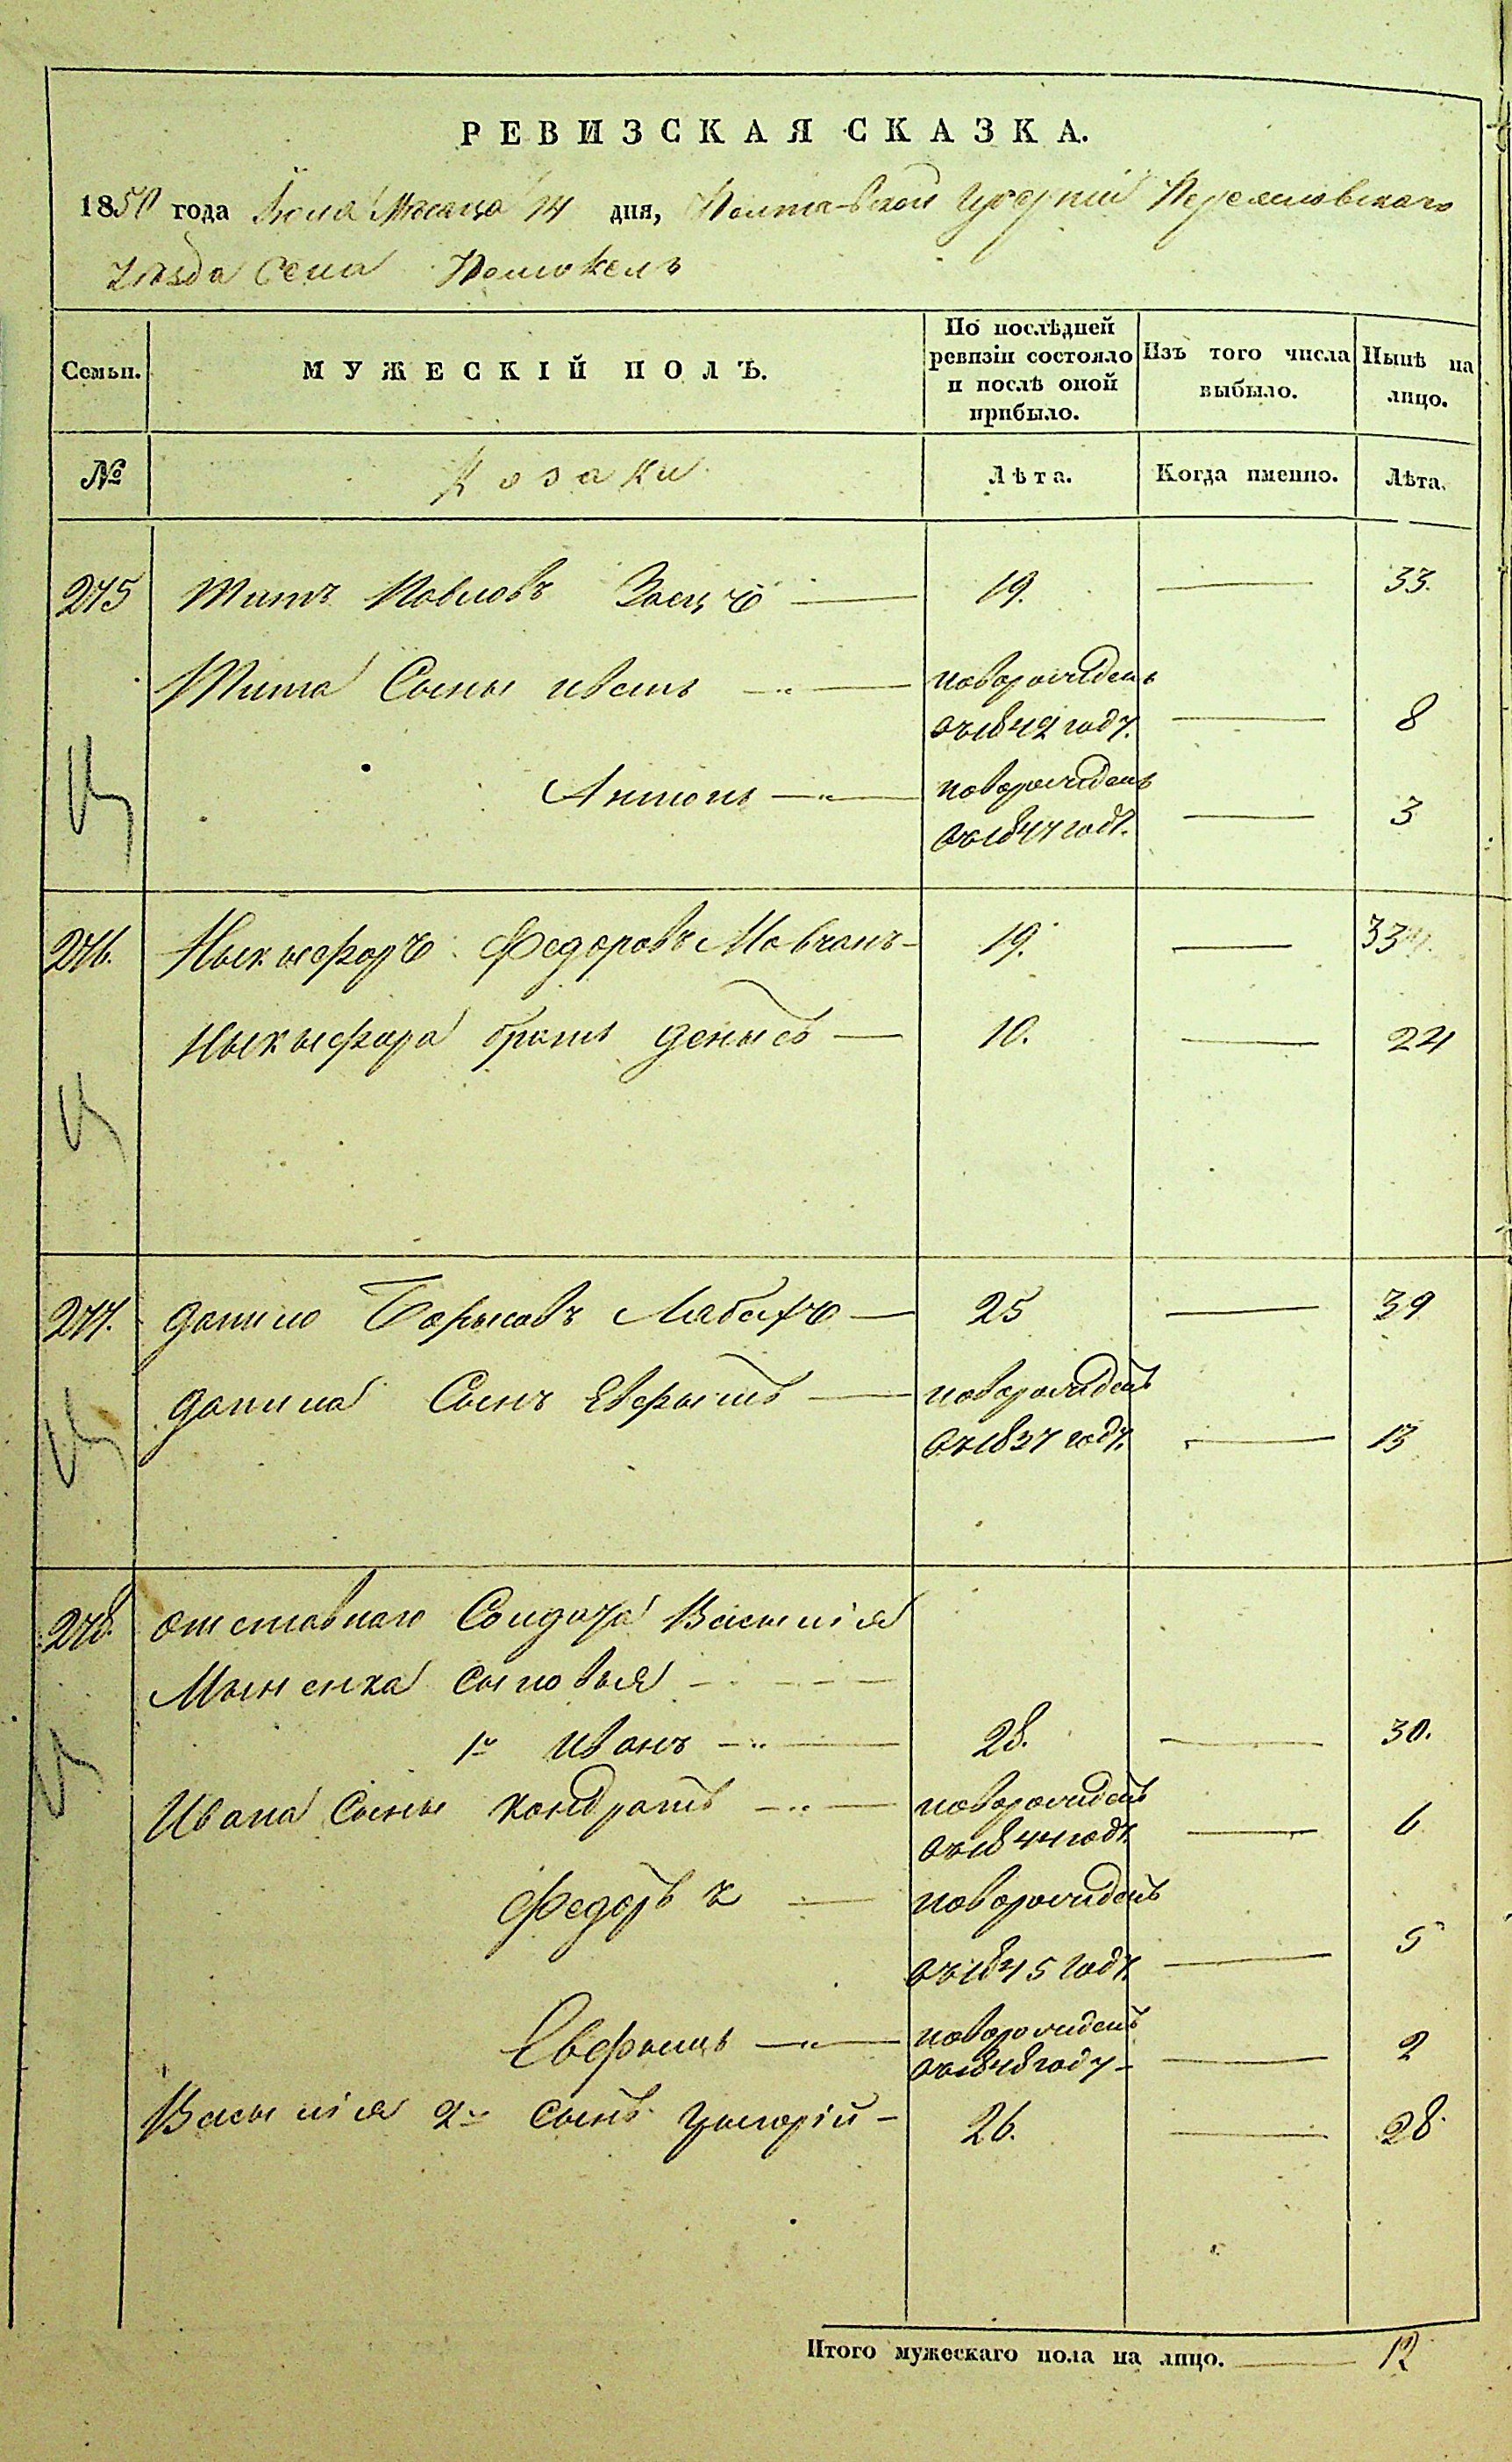 РЕВИЗСКАЯ СКАЗКА.
1850 года Іюля Месяца 14 дня, Полтавской Губерніи Переясловскаго
уезда Села Помокель
Семьи. МУЖЕСКІЙ ПОЛЪ. По послѣдней ревизіи состояло и послѣ оной прибыло. Изъ того числа выбыло. Нынѣ на лицо.
№ Козаки Лѣта. Когда именно. Лѣта.
275 Титъ Павловъ 19. — 33.
Тита Сыны иванъ — новорожденъ
въ 1842 году. — 8
Антонъ — новорожденъ
въ 1847 году. — 3
276. Ныкыфоръ Федоровъ Мовчанъ — 19. — 33
Ныкыфора братъ денысъ — 10. — 24
277. данило Борысовъ Лябахъ — 25 — 39
данила Сынъ Евфымъ — новорожденъ
въ 1837 году. — 13
278. отставнаго Солдата Васылія
Мыненка сыновья —
1й иванъ — 28. — 30.
Ивана Сыны кондратъ — новорожденъ
въ 1844 году — 6
Федоръ — новорожденъ
въ 1845 году — 5
Евфымъ — новорожденъ
въ 1848 году — 2
Васылія 2й сынъ Грыгорій — 26. — 28.
Итого мужескаго пола на лицо. — 12